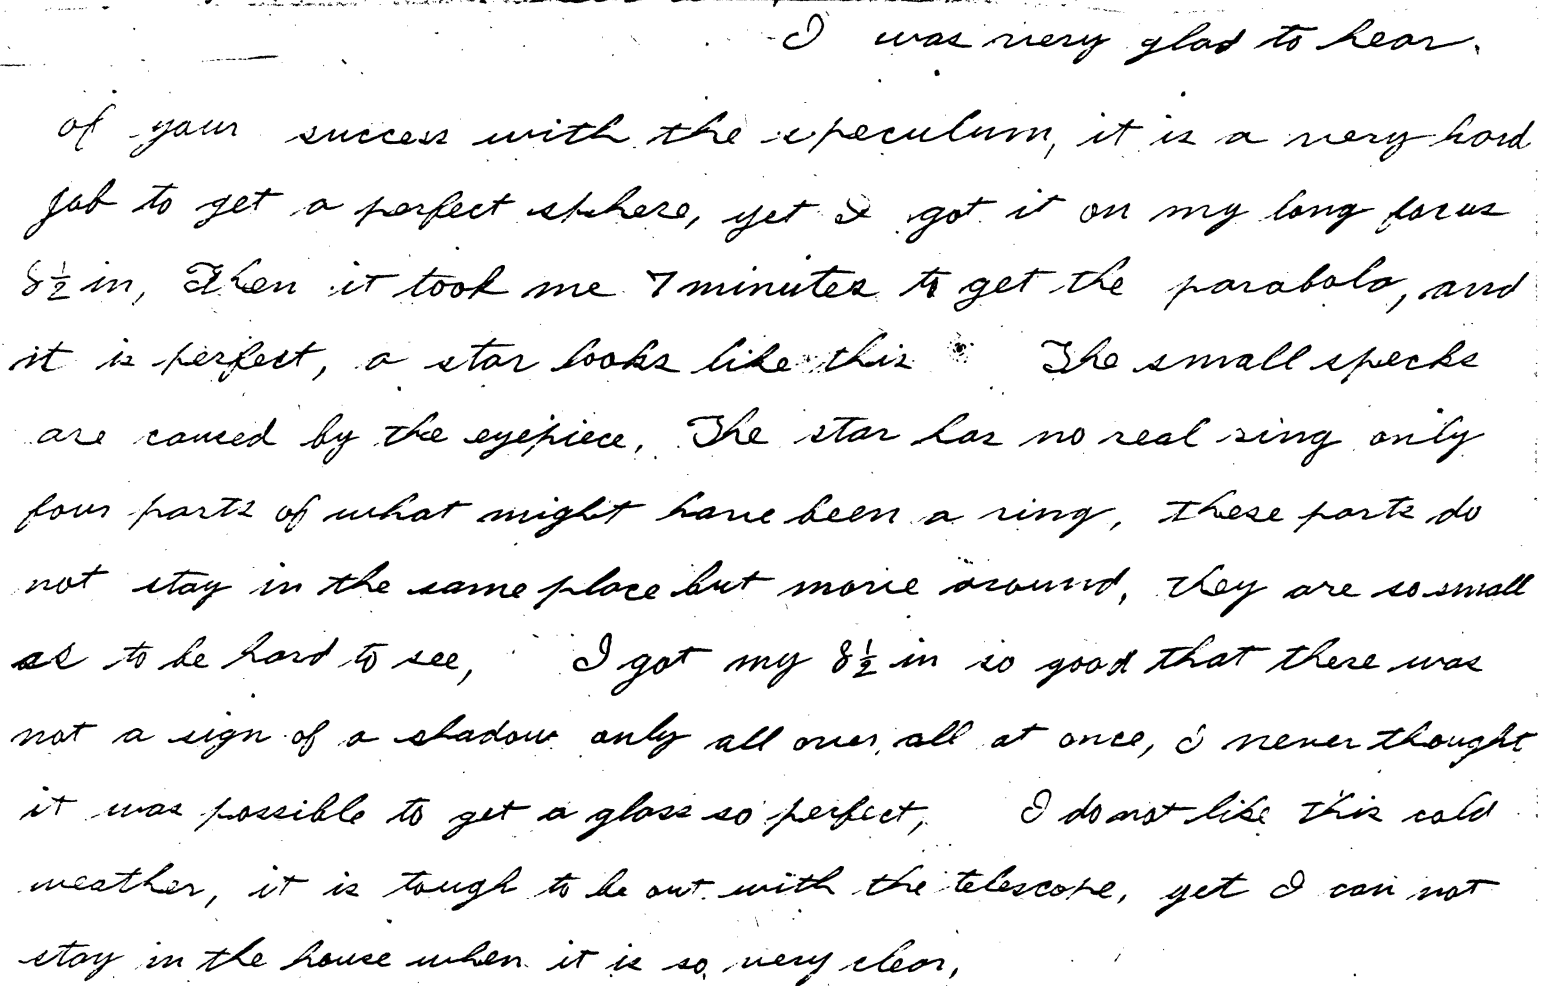 I was very glad to hear
of your success with the speculum, it is a very hard
job to get a perfect sphere, yet I got it on my long focus
8½ in, Then it took me 7 minutes to get the parabola, and
it is perfect, a star looks like this The small specks
are caused by the eyepiece. The star has no real ring only
four parts of what might have been a ring, these parts do
not stay in the same place but move around, they are so small
as to be hard to see, I got my 8½ in so good that there was
not a sign of a shadow only all over all at once, I never thought
it was possible to get a glass so perfect, I do not like this cold
weather, it is tough to be out with the telescope, yet I can not
stay in the house when it is so very clear,